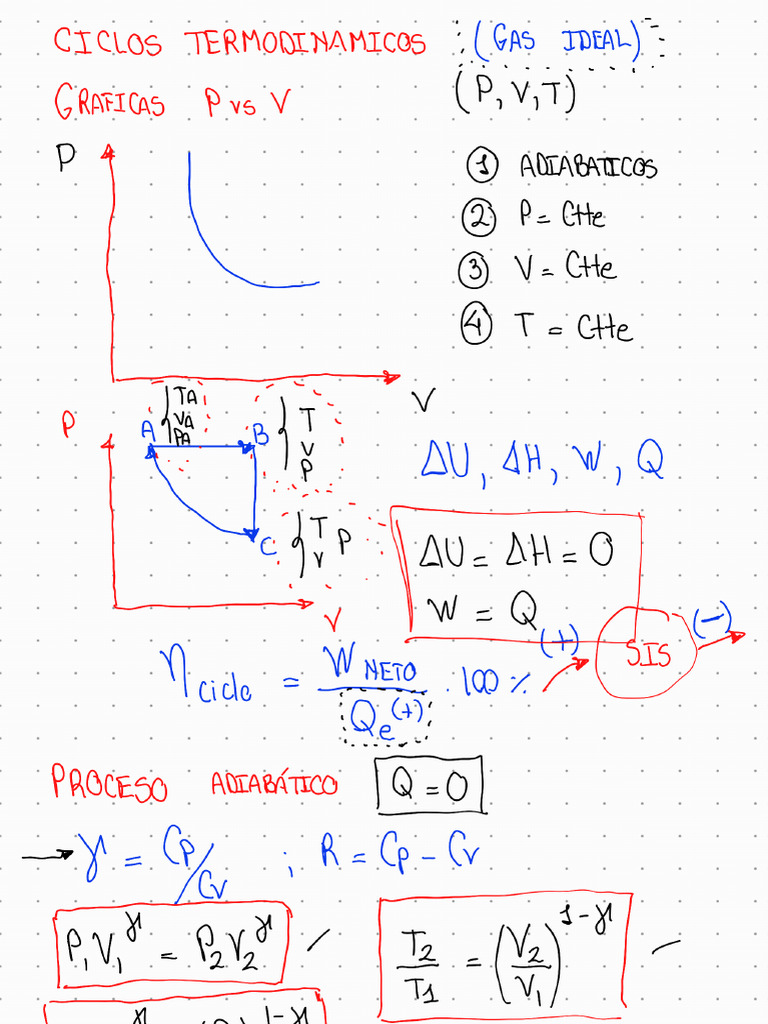 CICLOS TERMODINAMICOS (GAS IDEAL)
GRAFICAS P vs V (P, V, T)
P
① ADIABATICOS
② P = Ctte
③ V = Ctte
④ T = Ctte
V
P
A
TA
VA
PA
B
T
V
P
C
T
V P
V
ΔU, ΔH, W, Q
ΔU = ΔH = 0
W = Q
(+) SIS (-)
η ciclo = W NETO / Qe(+) · 100 %
PROCESO ADIABÁTICO Q = 0
→ γ = Cp/Cv ; R = Cp - Cv
P₁V₁^γ = P₂V₂^γ
T₂/T₁ = (V₂/V₁)^1-γ